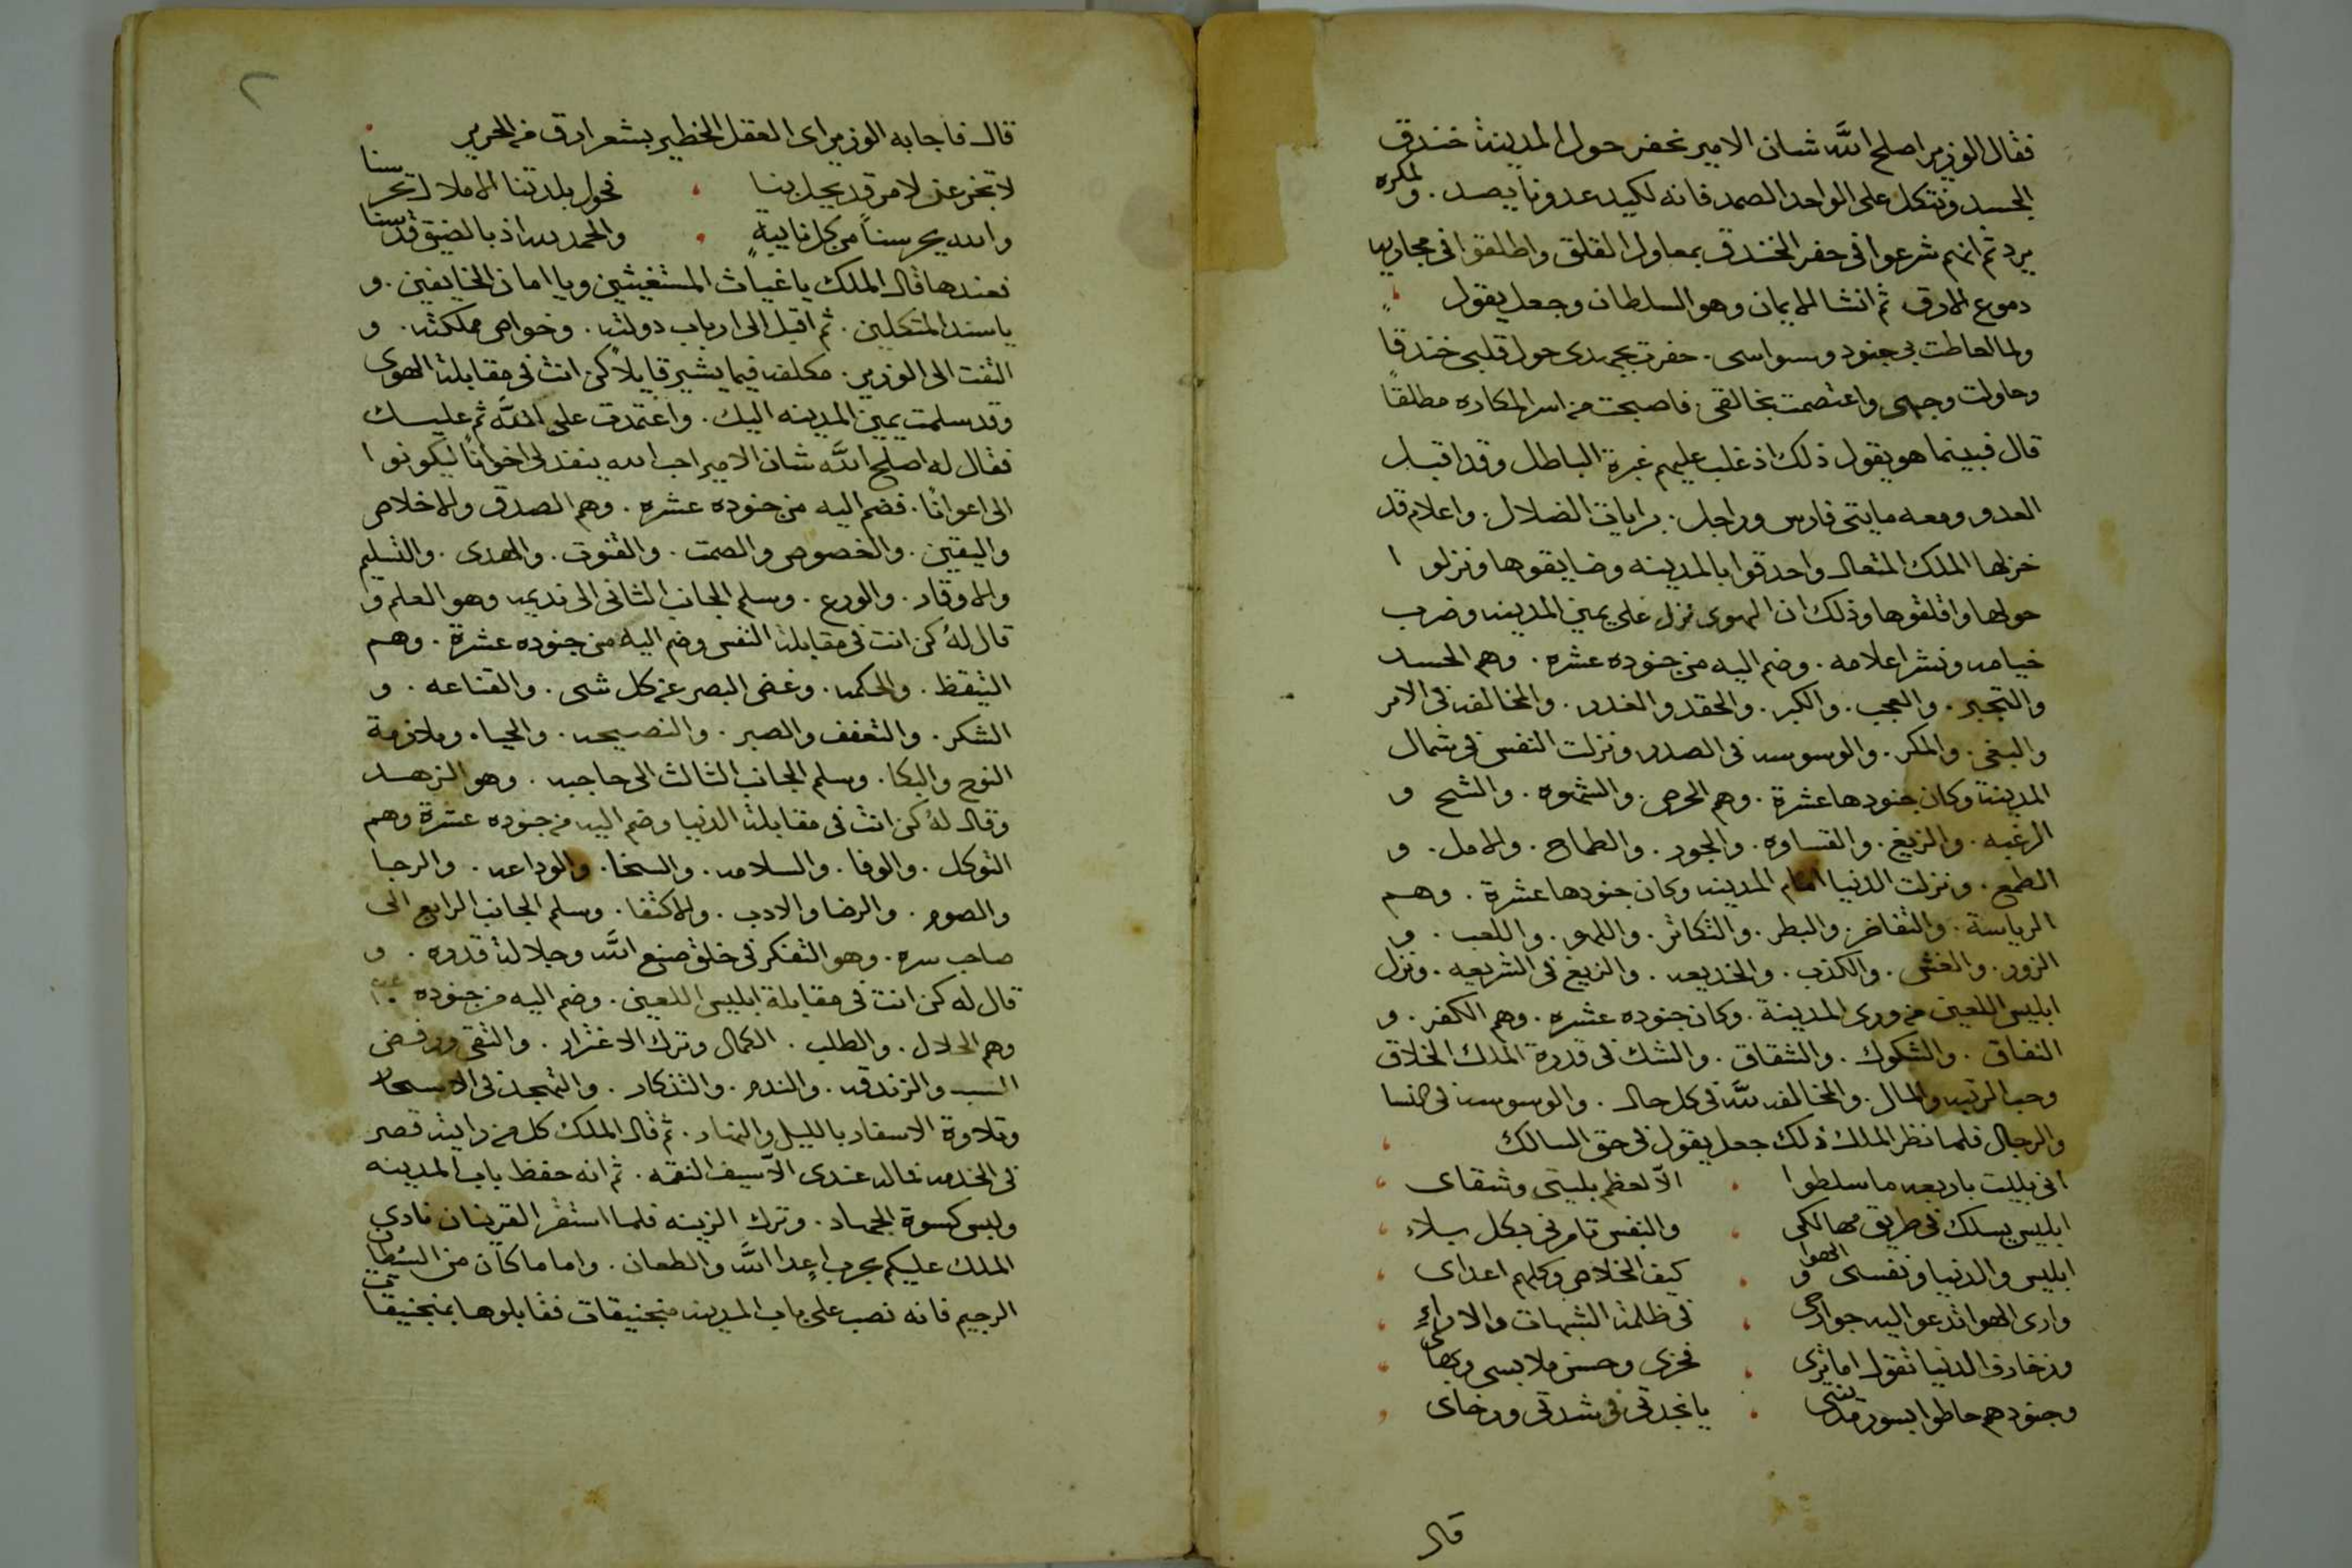 فقال الوزير اصلح الله شان الامير نحفر حول المدينة خندق
الجسد ونتكل على الواحد الصمد فانه لكيد عدونا يصد . ولمكره
يرد ثم انهم شرعوا في حفر الخندق بمعاول القلق واطلقوا في مجاريه
دموع الارق ثم انشا الايمان وهو السلطان وجعل يقول
ولما احاطت بي جنود وسواسي . حفرت بجهدي حول قلبي خندقا
وحاولت وجهي واعتصمت بخالقي . فاصبحت من اسر المكاره مطلقا
قال فبينما هو يقول ذلك اذ غلب عليهم غبرة الباطل وقد اقبل
العدو ومعه مايتى فارس وراجل . برايات الضلال . واعلام قد
خزلها الملك المتعال واحدقوا بالمدينه وضايقوها ونزلوا
حولها واقلقوها وذلك ان الهوى نزل على يمين المدينه وضرب
خيامه ونشر اعلامه . وضم اليه من جنوده عشره . وهم الحسد
والتجبر . والعجب . والكبر . والحقد والغدر . والمخالفه في الامر
والبغي . والمكر . والوسوسه في الصدر ونزلت النفس في شمال
المدينة وكان جنودها عشرة . وهم الحرص . والشهوه . والشح و
الرغبه . والزيغ . والقساوه . والجور . والطماح . والامل . و
الطمع . ونزلت الدنيا امام المدينه وكان جنودها عشرة . وهم
الرياسة . والتفاخر . والبطر . والتكاثر . واللهو . واللعب . و
الزور . والغش . والكذب . والخديعه . والزيغ في الشريعه . ونزل
ابليس اللعين من ورى المدينة . وكان جنوده عشره . وهم الكفر . و
النفاق . والشكوك . والشقاق . والشك في قدرة الملك الخلاق
وحب الرتبه والمال . والمخالفه لله في كل حال . والوسوسه في النسا
والرجال فلما نظر الملك ذلك جعل يقول في حق السالك
اني بليت باربعه ما سلطوا الا لعظم بليتي وشقاى
ابليس يسلك في طريق مهالكي والنفس تامرني بكل بلاء
ابليس والدنيا ونفسي والهوا كيف الخلاص وكلهم اعداى
وارى الهوا تدعو اليه جوارحي في ظلمة الشبهات والاراء
وزخارف الدنيا تقول اما ترى فخرى وحسن ملابسي وبهاى
وجنودهم حاطوا بسور مدينتي يا نجدتي في شدتي ورخاى
قال
٢
قال فاجابه الوزير اى العقل الخطير بشعر ارق من الحرير
لا تجزعن لامر قد يحل بنا فحول بلدتنا الاملاك تحرسنا
والله يحرسنا من كل نايبةٍ والحمد لله اذ بالضيق
فعندها قال الملك يا غياث المستغيثين ويا امان الخايفين . و
يا سند المتكلين . ثم اقبل الى ارباب دولته . وخواص مملكته . و
التفت الى الوزير . مكلفه فيما يشير قايلاً كن انت في مقابلة الهوى
وقد سلمت يمين المدينه اليك . واعتمدت على الله ثم عليك
فقال له اصلح الله شان الامير احب الله ينفذ لي اخواناً ليكونوا
الى اعواناً . فضم اليه من جنوده عشره . وهم الصدق والاخلاص
واليقين . والخصوص والصمت . والقنوت . والهدى . والتسليم
والاوقاد . والورع . وسلم الجانب الثاني الى نديمه وهو العلم و
قال لهُ كن انت في مقابلة النفس وضم اليه من جنوده عشرة . وهم
التيقظ . والحكمه . وغض البصر عن كل شى . والقناعه . و
الشكر . والتعفف والصبر . والنصيحه . والحياء وملازمة
النوح والبكا . وسلم الجانب الثالث الى حاجبه . وهو الزهد
وقال لهُ كن انت في مقابلة الدنيا وضم اليه من جنوده عشرة وهم
التوكل . والوفا . والسلامه . والسخا . والوداعه . والرجا
والصوم . والرضا والادب . والاكتفا . وسلم الجانب الرابع الى
صاحب سره . وهو التفكر في خلق صنيع الله وجلالة قدره . و
قال له كن انت في مقابلة ابليس اللعين . وضم اليه من جنوده
وهم الحلال . والطلب . الكمال وترك الاغترار . والتقى ورفض
السب والزندقه . والندم . والتذكار . والتهجد في الاسحار
وتلاوة الاسفار بالليل والنهار . ثم قال الملك كل من رايته قصر
في الخدمه فماله عندي الا سيف النقمه . ثم انه حفظ باب المدينه
ولبس كسوة الجهاد . وترك الزينه فلما استقر القرينان نادى
الملك عليكم بحرب اعدا الله والطعان . واما ما كان من الشيطان
الرجيم فانه نصب على باب المدينه منجنيقات فقابلوها بمنجنيقات